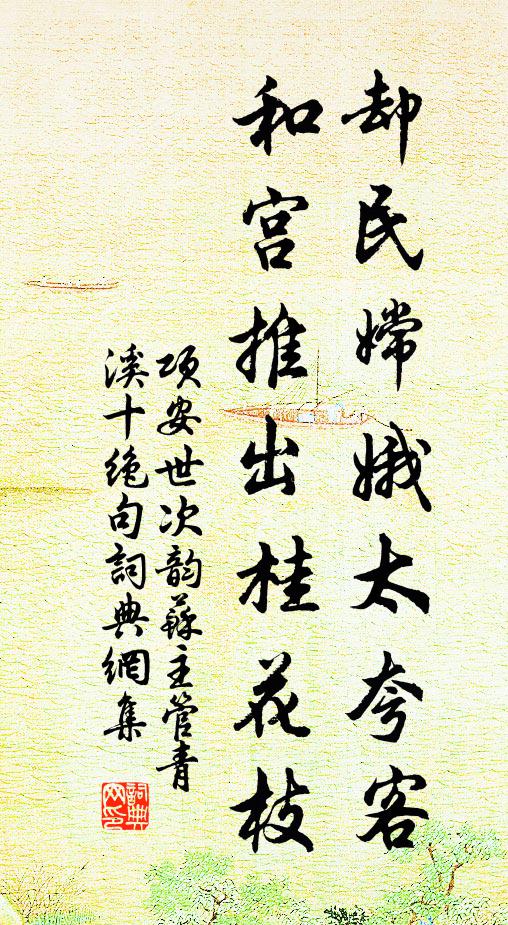 却民嫦娥太夸客
和宫推出桂花枝
項安世次韵蘇主管青
溪十绝句詞典網集
詞典
网印